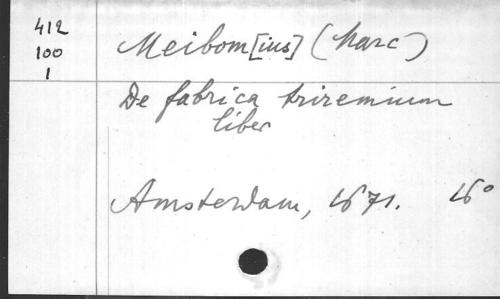 412
100
1
Meibom[ius] (Marc)
De fabrica triremium
liber
Amsterdam, 1671. 16°